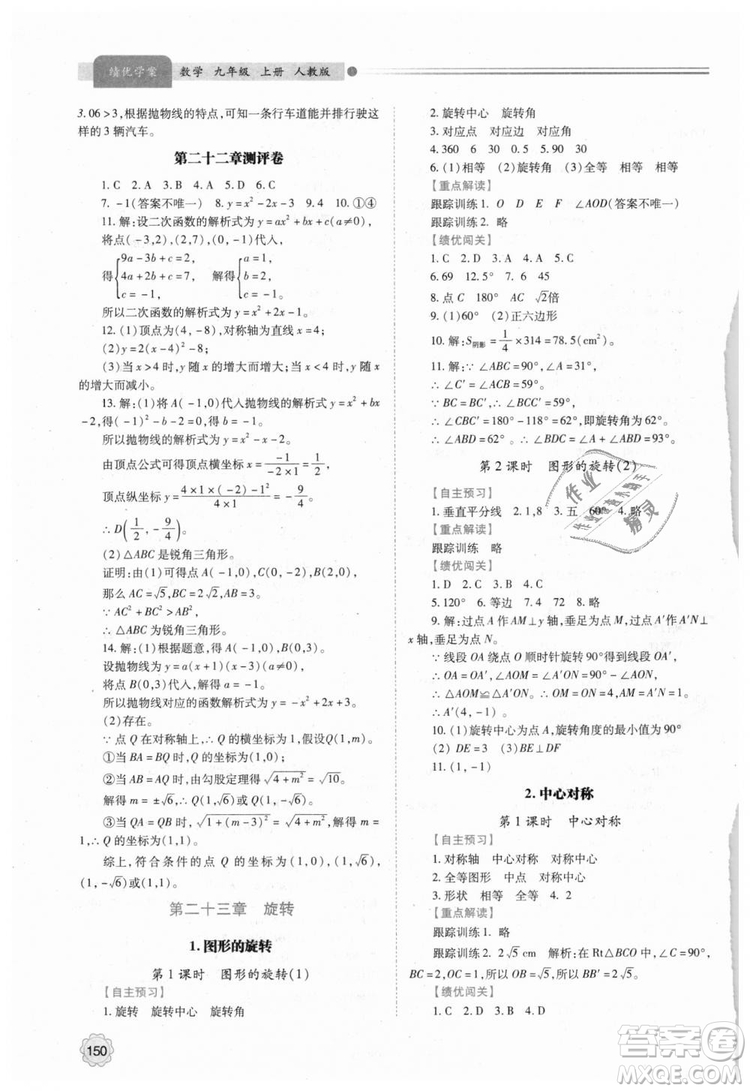 绩优学案 数学 九年级 上册 人教版
3.06>3,根据抛物线的特点,可知一条行车道能并排行驶这
样的3辆汽车。
第二十二章测评卷
1. C 2. A 3. B 4. D 5. D 6. C
7. -1(答案不唯一) 8. y=x²-3 9. 4 10. ①④
11. 解:设二次函数的解析式为 y=ax²+bx+c(a≠0)
将点(-3,2),(2,7),(0,-1)代入,
得{9a-3b+c=2, 4a+2b+c=7, c=-1, 得{a=1, b=2, c=-1。
所以二次函数的解析式为 y=x²+2x-1。
12. (1)顶点为(4,-8),对称轴为直线 x=4;
(2)y=2(x-4)²-8,当 x>4 时,y 随 x 的增大而增大;当 x<4 时,y 随
x 的增大而减小。
13. 解:(1)将 A(-1,0)代入抛物线解析式 y=x²+bx
-2,得(-1)²-b-2=0,得 b=-1。
所以抛物线的函数解析式为 y=x²-x-2。
由顶点公式可得顶点横坐标 x=-(-1)/(-2×1)=1/2,
顶点纵坐标 y=(4×1×(-2)-1²)/(4×1)=-9/4,
∴ D(1/2,-9/4)。
(2)△ABC 是锐角三角形。
证明:由(1)可得点 A(-1,0),点 B(2,0),点 C(0,-2),
那么 AC=√5,BC=2√2,AB=3。
∵ AC²+BC²>AB²,
∴ △ABC 是锐角三角形。
14. 解:(1)根据题意,得 A(-1,0),B(0,3)。
设抛物线为 y=a(x+1)(x-3)(a≠0),
将点 B(0,3)代入解析式得 a=-1。
所以抛物线对应的函数解析式为 y=-x²+2x+3。
(2)存在。
∵ 点 Q 在对称轴上,∴ Q 的横坐标为1,设 Q(1,m)。
①当 BA=BQ 时,易得点 Q 的坐标为(1,0)或(1,6);
②当 AB=AQ 时,由勾股定理可得 √(4+m²)=√10,
解得 m=±√6,∴ Q 的坐标为(1,√6)或(1,-√6);
③当 QA=QB 时,√(1+(m-3)²)=√(4+m²),解得 m=
1,∴ Q 点的坐标为(1,1)。
综上,符合条件的点 Q 的坐标为(1,0)或(1,6)或
(1,-√6)或(1,√6)或(1,1)。
第二十三章 旋转
1. 图形的旋转
第1课时 图形的旋转(1)
【自主预习】
1. 旋转 旋转中心 旋转角
150
2. 旋转中心 旋转角
3. 对应点 对应边 对应角
4. 360 6 30 0.5 5. 90 30
6. (1)相等 (2)旋转角 (3)全等 相等 相等
【重点解读】
跟踪训练1. O D E F ∠AOD(答案不唯一)
跟踪训练2. 略
【绩优闯关】
1. C 2. D 3. A 4. C 5. B
6. 69 12.5° 7. 3
8. 点 C 180° AC √2倍
9. (1)60° (2)正六边形
10. 解:S阴影=1/4×314=78.5(cm²)
11. 解:∵ ∠ABC=90°,∠A=31°,
∴ ∠C′=∠ACB=59°。
∵ BC=BC′,∴ ∠BCC′=59°。
∴ ∠CBC′=180°-118°=62°,即旋转角为62°。
∴ ∠ABD=62°。∴ ∠BDC=∠A+∠ABD=93°。
第2课时 图形的旋转(2)
【自主预习】
1. 垂直平分线 2. 1,8 3. 五 60° 4. 略
【重点解读】
跟踪训练 略
【绩优闯关】
1. D 2. C 3. C 4. B
5. 120° 6. 等边 7. 120° 8. 略
9. 解:过点 A 作 AM⊥y 轴,垂足为点 M,过点 A′作 A′N⊥
x 轴,垂足为点 N。
∵ 线段 OA 绕点 O 顺时针旋转90°得到线段 OA′,
∴ OA=OA′,∠AOM=90°-∠AON=∠A′ON。
∴ △AOM≌△A′ON。∴ OM=ON=4,AM=A′N=1。
∴ A′(4,-1)。
10. (1)旋转中心为点 A,旋转角度的最小值为90°
(2)DE=3 (3)BE⊥DF
11. (1,-1)
2. 中心对称
第1课时 中心对称
【自主预习】
1. 对称轴 中心对称 对称中心
2. 全等图形 中点 对称中心
3. 形状 相等 全等 4. 2
【重点解读】
跟踪训练1. 略 2. 2√5 cm 解析:在Rt△BCO中,∵
BC=2,OC=1,∴ BO=√5。所以 BB′=2BO=2√5。
【绩优闯关】
1. C 2. D 3. C 4. D
作业
作业检查小助手
精灵
答案圈
MXQE.COM